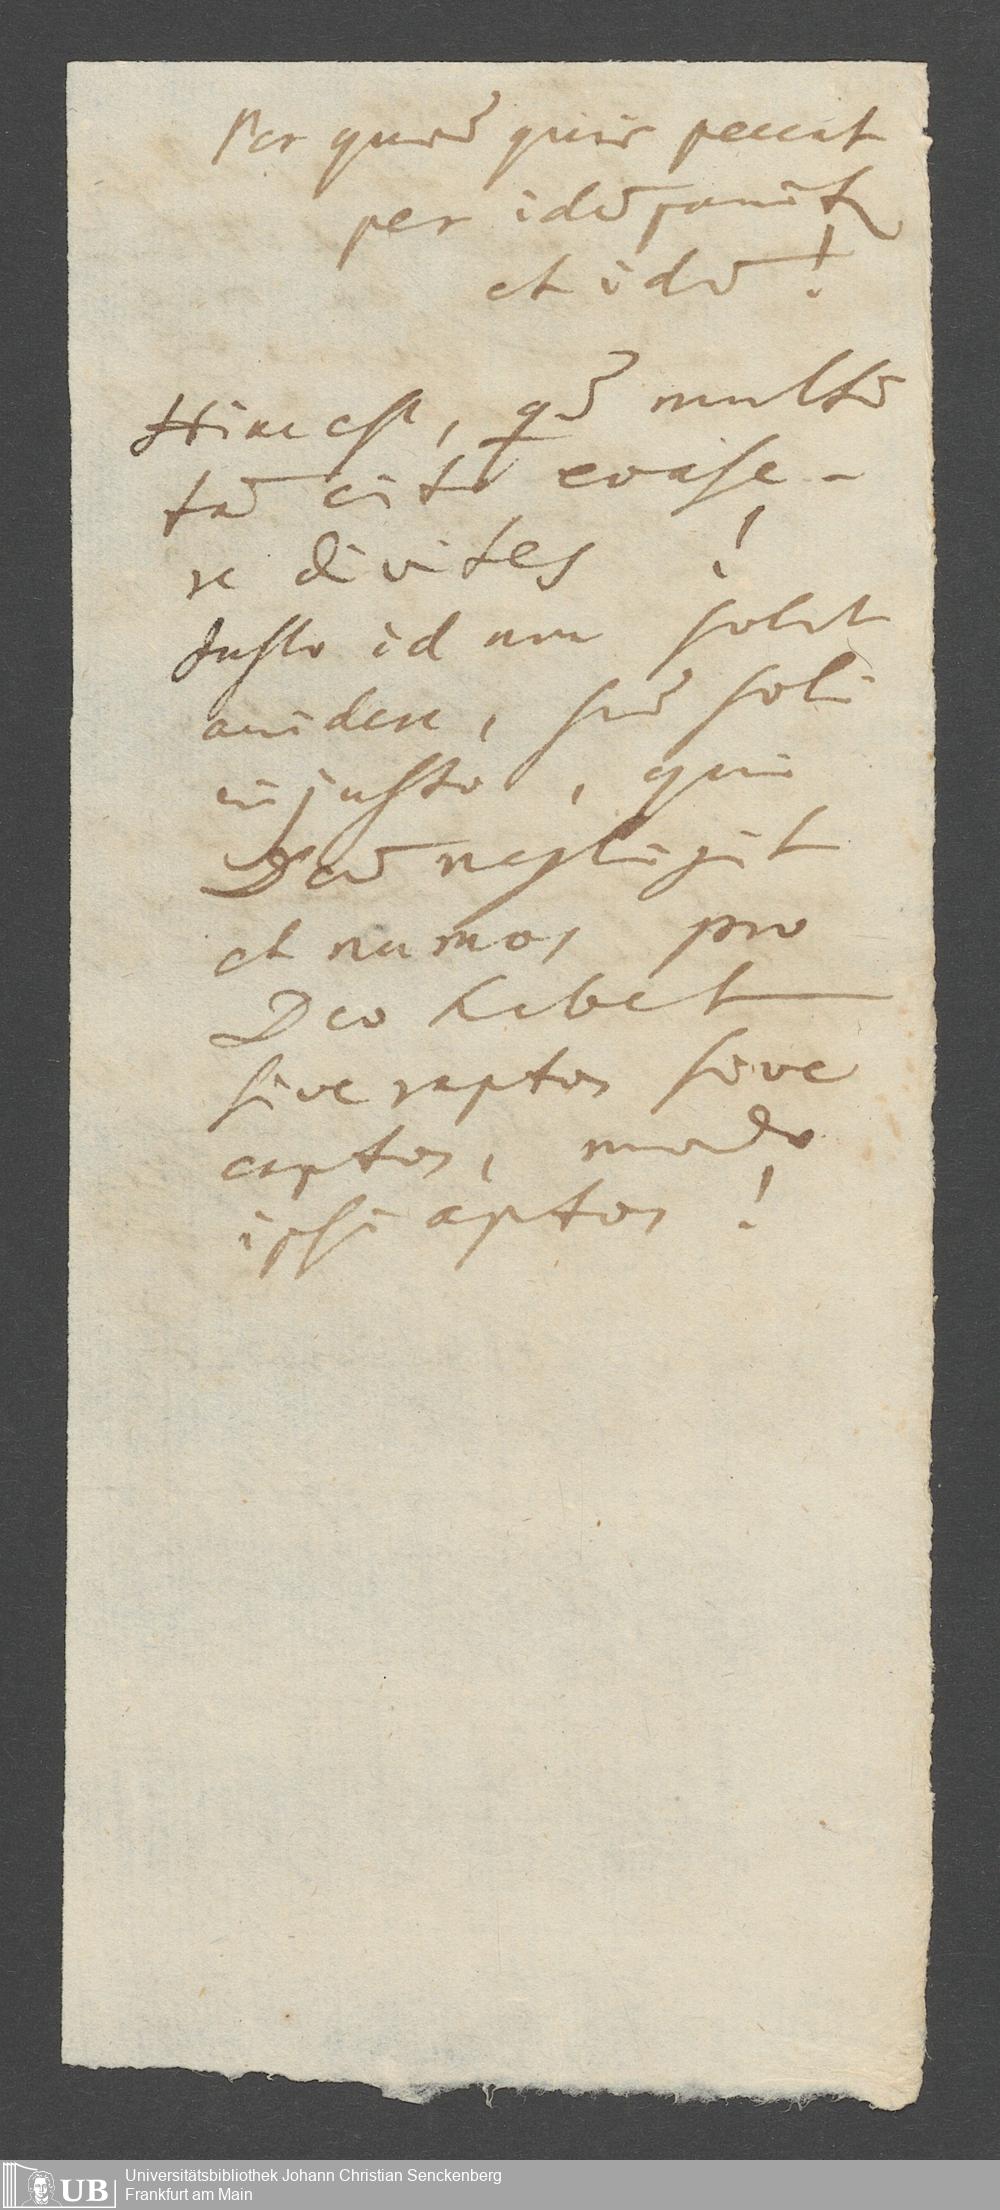 Per quod quis peccat
per idē punit
et idē !
Hinc est, qd multi
tā cito evase-
re divites !
Justo id non solet
accidere, sed soli
injusto, qui
Deū negligit
et numos pro
Deo habet
sive raptos sive
captos, modo
ipsi aptos !
Universitätsbibliothek Johann Christian Senckenberg
Frankfurt am Main
UB